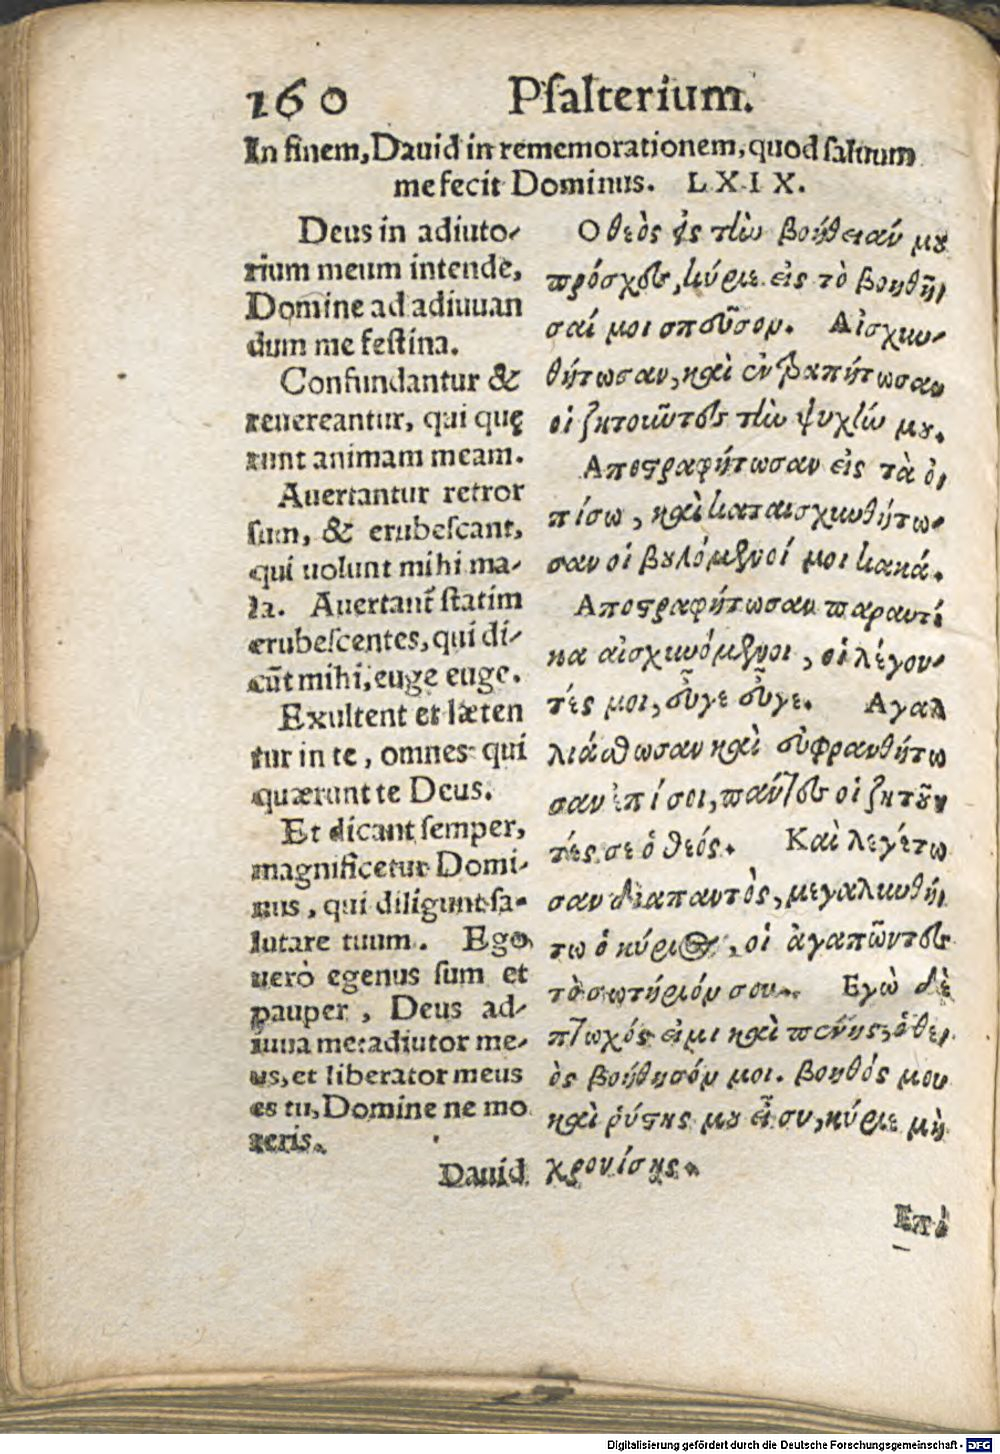 160 Psalterium.
In finem, Dauid in rememorationem, quod saluum
me fecit Dominus. LXIX.
Deus in adiuto-
rium meum intende,
Domine ad adiuuan
dum me festina.
Confundantur &
reuereantur, qui quę
runt animam meam.
Auertantur retror
sum, & erubescant,
qui uolunt mihi ma-
la. Auertant̃ statim
erubescentes, qui di-
cũt mihi, euge euge.
Exultent et læten
tur in te, omnes qui
quærunt te Deus.
Et dicant semper,
magnificetur Domi-
nus, qui diligunt sa-
lutare tuum. Ego
uerò egenus sum et
pauper, Deus ad-
iuua me: adiutor me-
us, et liberator meus
es tu, Domine ne mo
reris.
Dauid
Ο θεὸς εἰς τὴν βοήθειάν μου
πρόσχες, κύριε εἰς τὸ βοηθῆ-
σαί μοι σπεῦσον. Αἰσχυν-
θήτωσαν, καὶ ἐντραπήτωσαν
οἱ ζητοιῶντες τὴν ψυχήν μου.
Αποστραφήτωσαν εἰς τὰ ὀ-
πίσω, καὶ καταισχυνθήτω-
σαν οἱ βουλόμενοί μοι κακά.
Αποστραφήτωσαν παραυτί
κα αἰσχυνόμενοι, οἱ λέγον-
τές μοι, εὖγε εὖγε. Αγαλ
λιάσθωσαν καὶ εὐφρανθήτω
σαν ἐπί σοι, πάντες οἱ ζητοῦν
τές σε ὁ θεός. Καὶ λεγέτω
σαν διαπαντὸς, μεγαλυνθή-
τω ὁ κύριος, οἱ ἀγαπῶντες
τὸ σωτήριόν σου. Εγὼ δὲ
πτωχός εἰμι καὶ πένης, ὁ θε-
ὸς βοήθησόν μοι. βοηθός μου
καὶ ῥύστης μου εἶ συ, κύριε μὴ
χρονίσῃς.
Επὶ
Digitalisierung gefördert durch die Deutsche Forschungsgemeinschaft - DFG